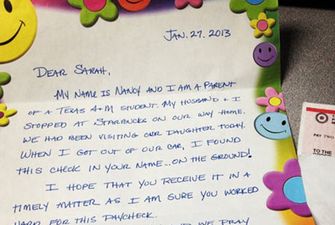 JAN. 27. 2013
DEAR SARAH,
MY NAME IS NANCY AND I AM A PARENT
OF A TEXAS A+M STUDENT. MY HUSBAND + I
STOPPED AT STARBUCKS ON OUR WAY HOME.
WE HAD BEEN VISITING OUR DAUGHTER TODAY.
WHEN I GOT OUT OF OUR CAR, I FOUND
THIS CHECK IN YOUR NAME...ON THE GROUND!
I HOPE THAT YOU RECEIVE IT IN A
TIMELY MATTER AS I AM SURE YOU WORKED
HARD FOR THIS PAYCHECK.
WE PRAY
PAY
TO THE